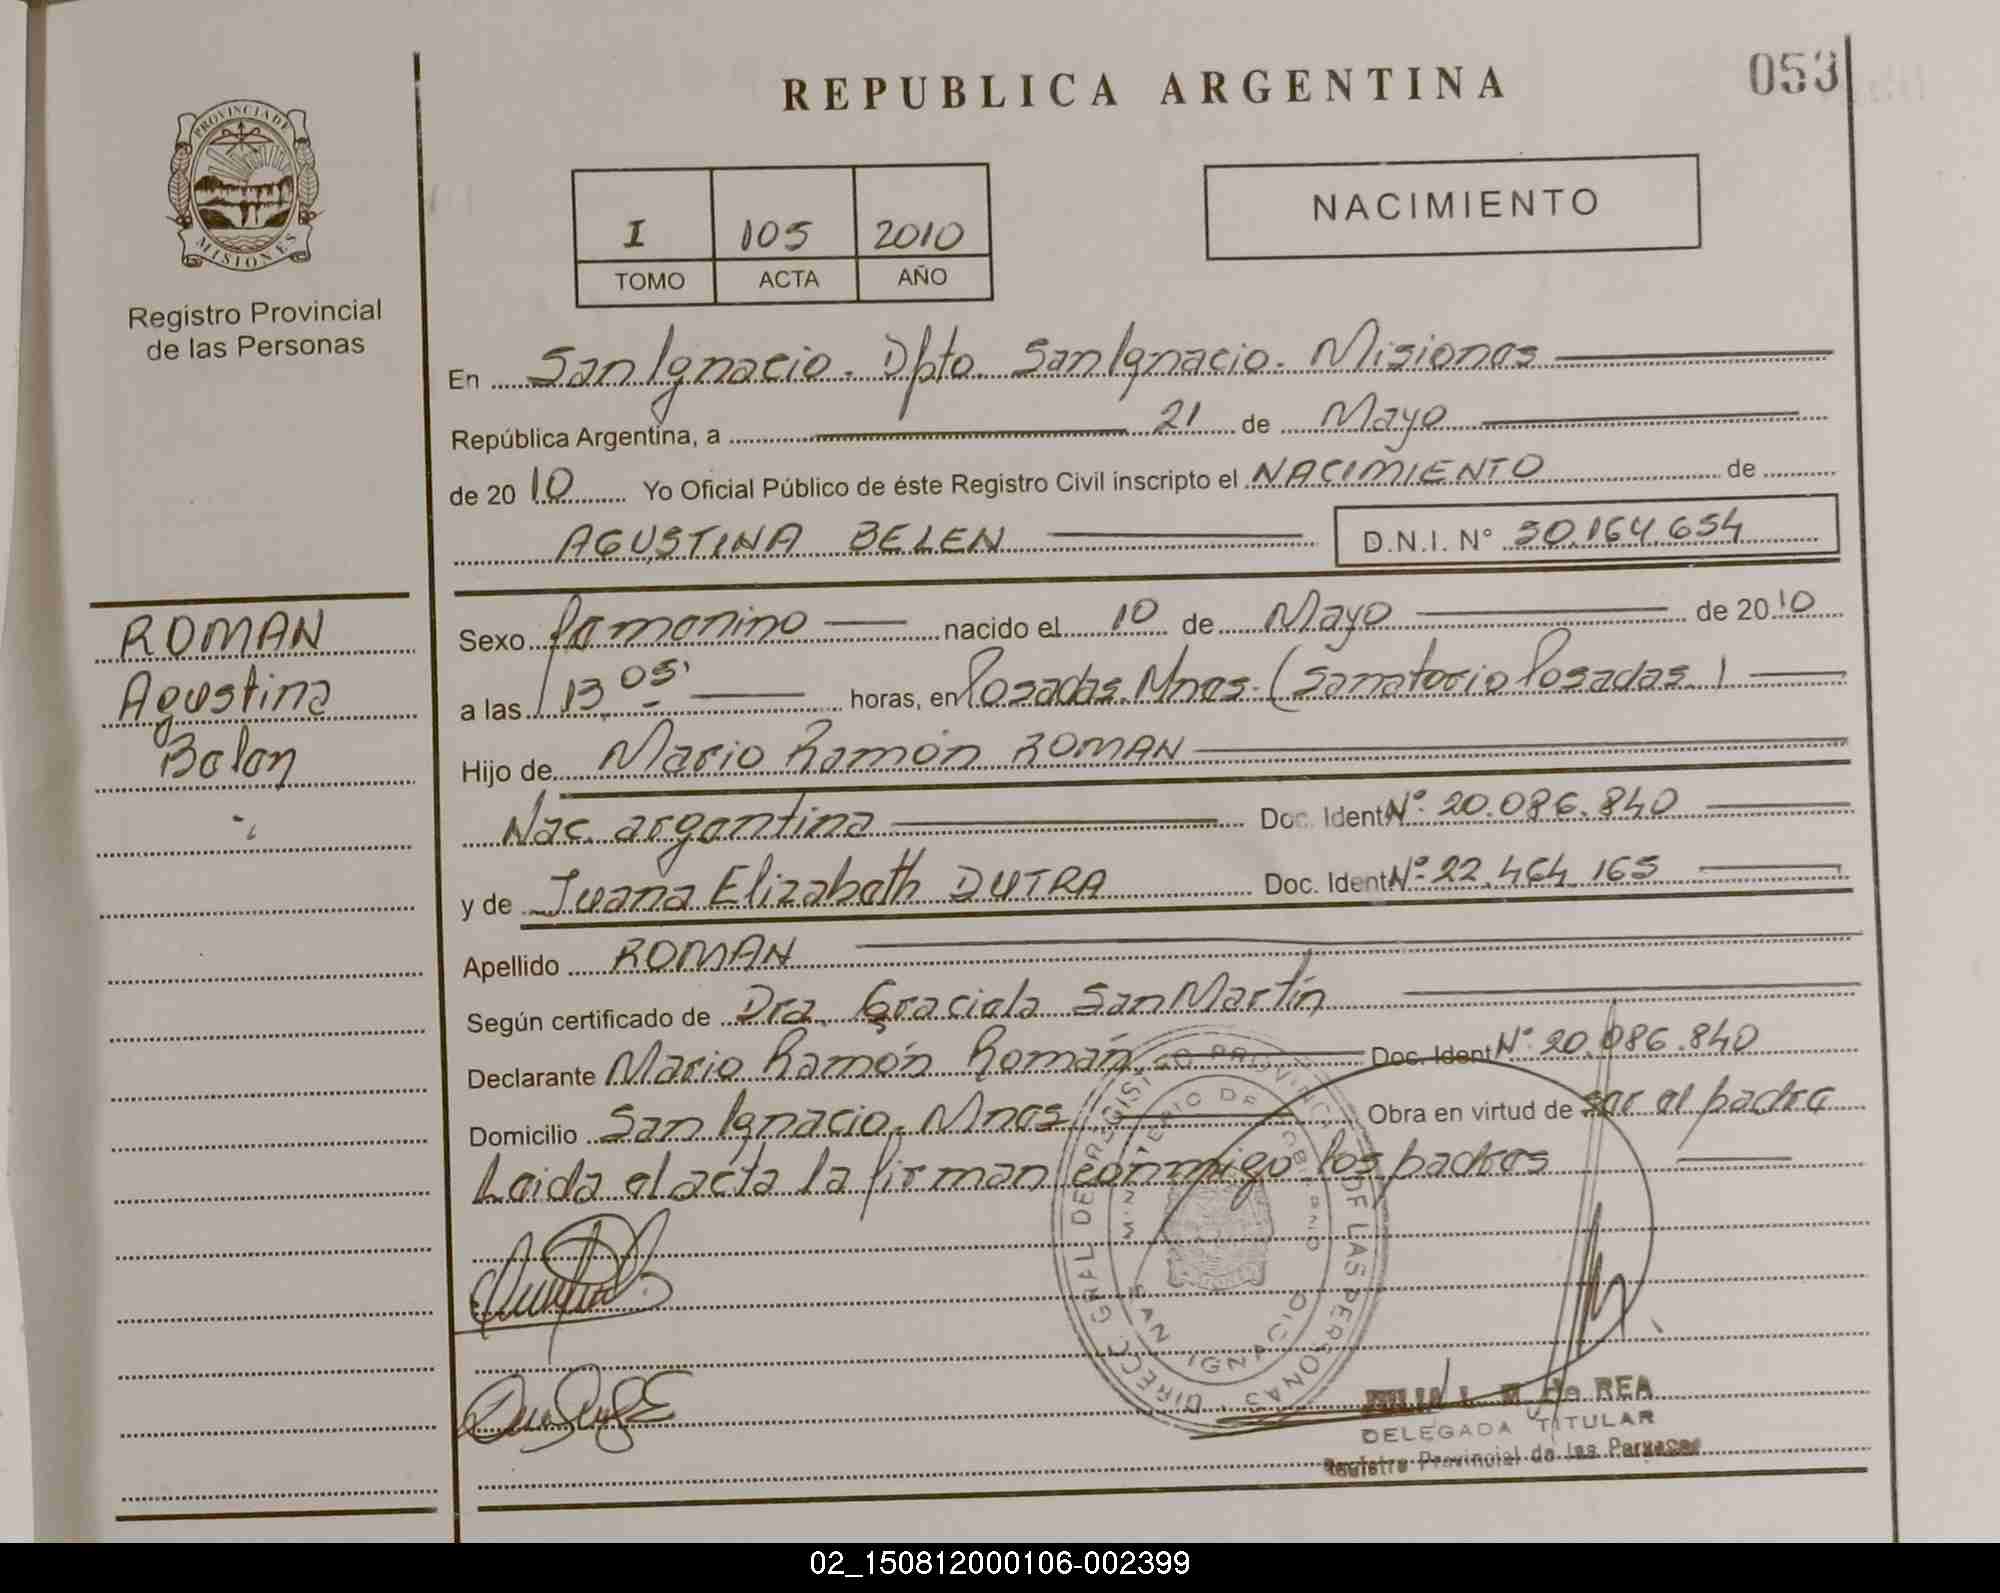 REPUBLICA ARGENTINA
053
PROVINCIA DE
MISIONES
Registro Provincial
de las Personas
I 105 2010
TOMO ACTA AÑO
NACIMIENTO
En San Ignacio. Dpto. San Ignacio. Misiones
República Argentina, a 21 de Mayo
de 20 10 Yo Oficial Público de éste Registro Civil inscripto el NACIMIENTO de
AGUSTINA BELEN D.N.I. Nº 50.164.654
ROMAN
Agustina
Belen
Sexo femenino nacido el 10 de Mayo de 20 10
a las 13 05' horas, en Posadas. Mnes. (Sanatorio Posadas.)
Hijo de Mario Ramón ROMAN
Nac. argentina Doc. Ident Nº 20.086.840
y de Juana Elizabeth DUTRA Doc. Ident Nº 22.464.165
Apellido ROMAN
Según certificado de Dra. Graciela San Martín
Declarante Mario Ramón Román Doc. Ident Nº 20.086.840
Domicilio San Ignacio. Mnes Obra en virtud de ser el padre
Leida el acta la firman conmigo los padres
DIRECC. GRAL DE REGISTRO PROVINCIAL DE LAS PERSONAS
MINISTERIO DE GOBIERNO
SAN IGNACIO
JULIA L. M de REA
DELEGADA TITULAR
Registro Provincial de las Personas
02_150812000106-002399